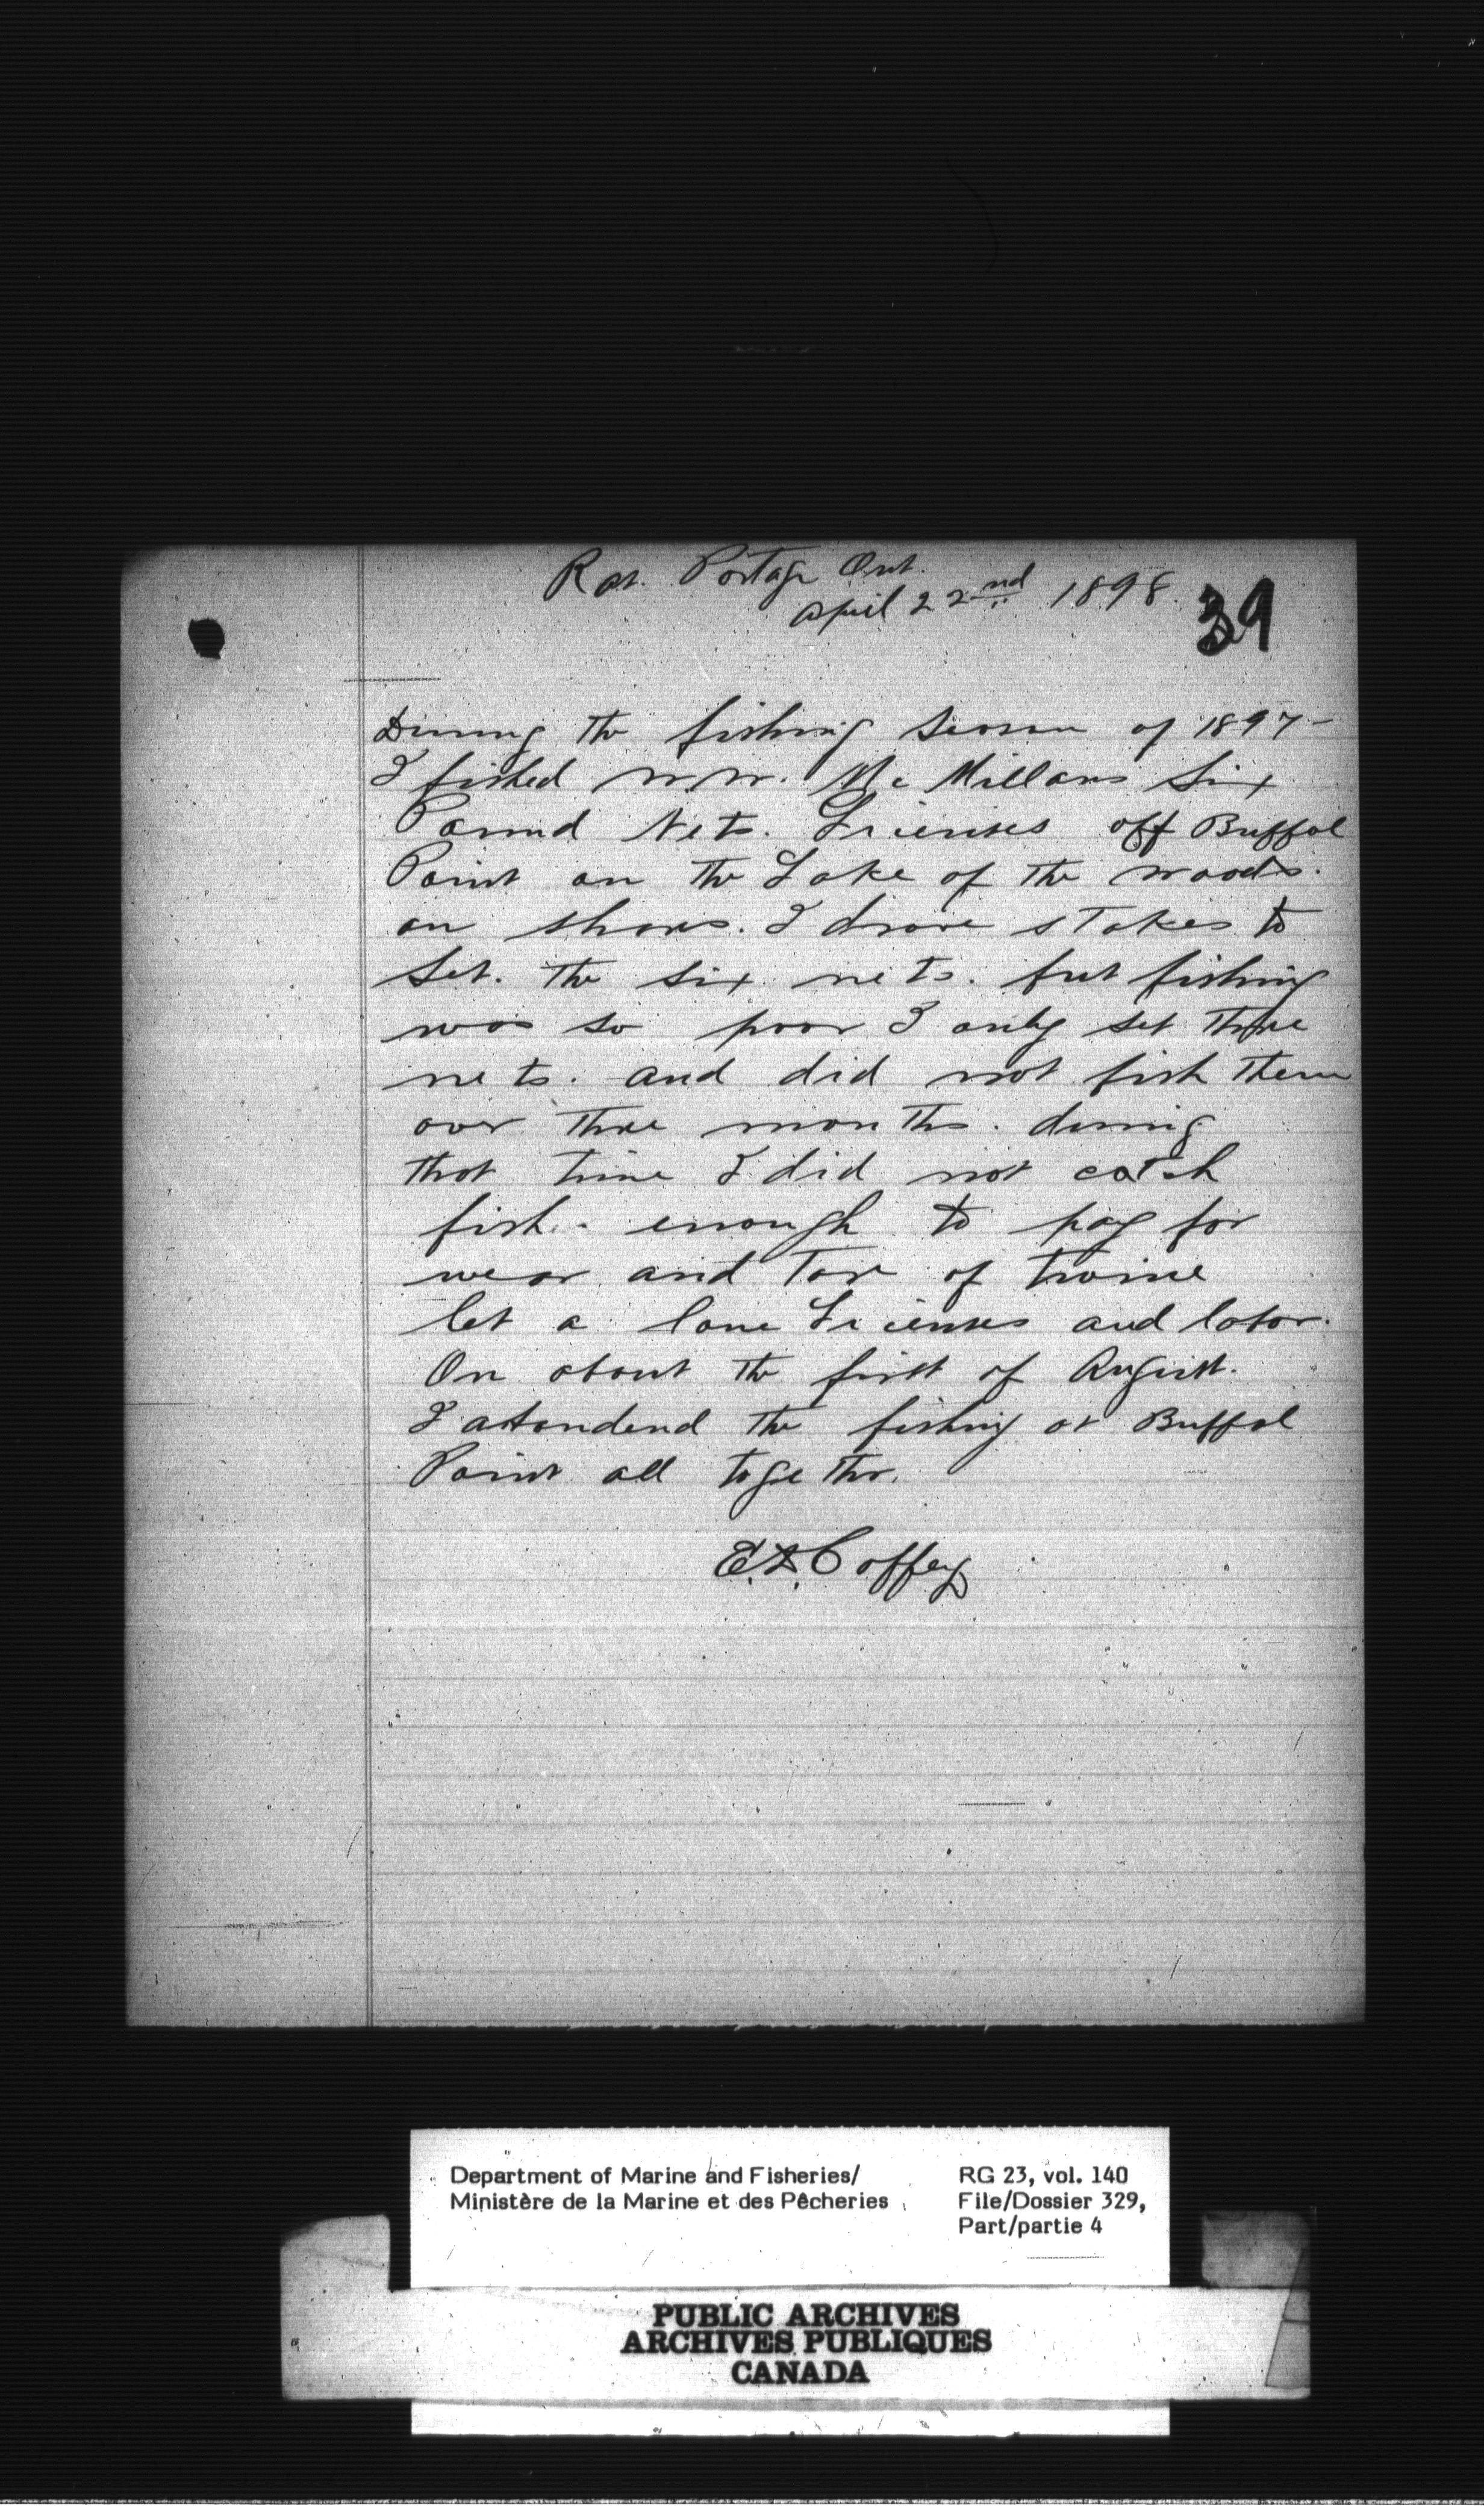 Rat. Portage Ont.
April 22nd 1898.
39
During the fishing Season of 1897-
I fished W.W. Mc Millans Six
Pound Nets. Licenses off Buffol
Point on the Lake of the woods.
on shore. I drove stakes to
Set. the six nets. but fishing
was so poor I only set three
nets. and did not fish them
over three months. during
that time I did not catch
fish. enough to pay for
wear and Tare of twine
let a lone Licenses and labor.
On about the first of August.
I abandend the fishing at Buffol
Point all together.
E.D. Coffey
Department of Marine and Fisheries/
Ministère de la Marine et des Pêcheries
RG 23, vol. 140
File/Dossier 329,
Part/partie 4
PUBLIC ARCHIVES
ARCHIVES PUBLIQUES
CANADA